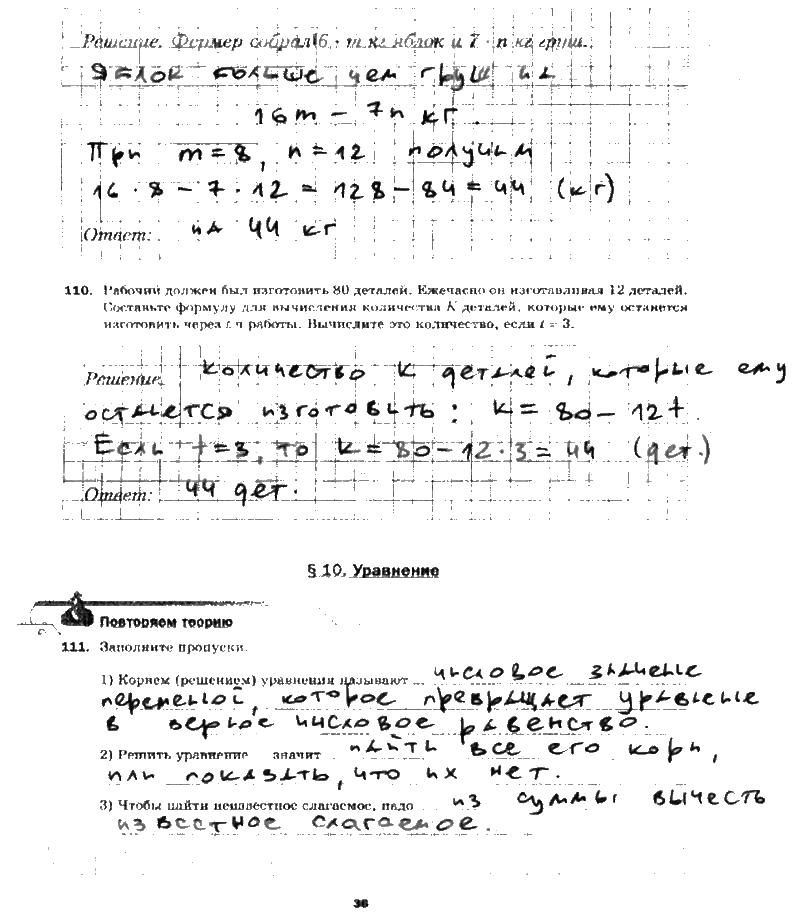 Решение. Фермер собрал 16 · m кг яблок и 7 · n кг груш.
Яблок больше чем груш на
16m − 7n кг.
При m = 8, n = 12 получим
16 · 8 − 7 · 12 = 128 − 84 = 44 (кг)
Ответ: на 44 кг
110. Рабочий должен был изготовить 80 деталей. Ежечасно он изготавливал 12 деталей.
Составьте формулу для вычисления количества K деталей, которые ему останется
изготовить через t ч работы. Вычислите это количество, если t = 3.
Решение. Количество K деталей, которые ему
останется изготовить: K = 80 − 12t.
Если t = 3, то K = 80 − 12 · 3 = 44 (дет.)
Ответ: 44 дет.
§ 10. Уравнение
Повторяем теорию
111. Заполните пропуски.
1) Корнем (решением) уравнения называют числовое значение
переменной, которое превращает уравнение
в верное числовое равенство.
2) Решить уравнение — значит найти все его корн,
или показать, что их нет.
3) Чтобы найти неизвестное слагаемое, надо из суммы вычесть
известное слагаемое.
36